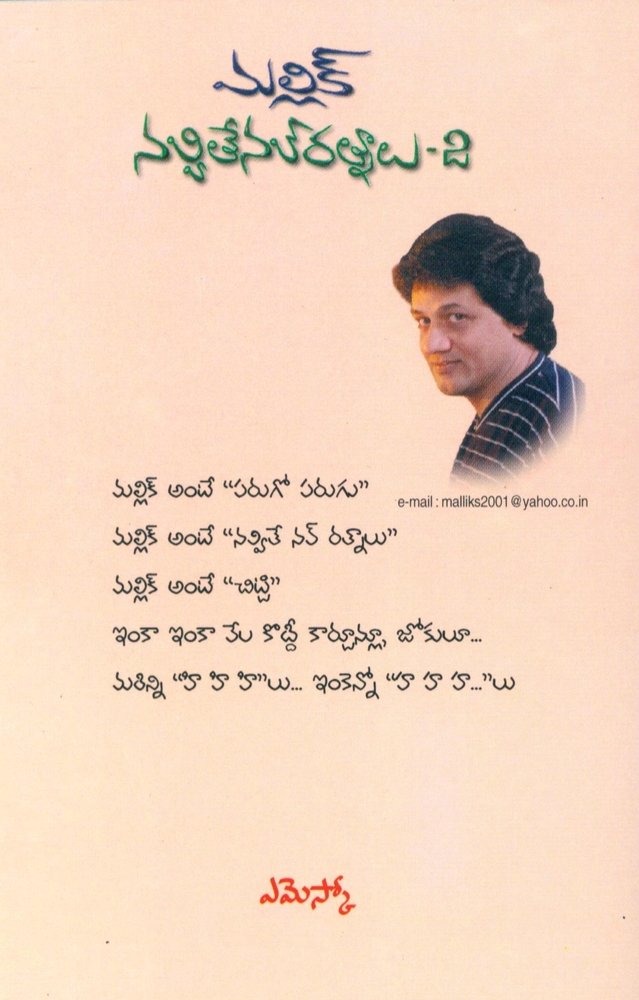 మల్లిక్
నవ్వితేనవ్‌రత్నాలు-2
మల్లిక్ అంటే “పరుగో పరుగు”
e-mail : malliks2001@yahoo.co.in
మల్లిక్ అంటే “నవ్వితే నవ్ రత్నాలు”
మల్లిక్ అంటే “చిట్టి”
ఇంకా ఇంకా వేల కొద్దీ కార్టూన్లూ, జోకులూ...
మరిన్ని “హి హి హి”లు... ఇంకెన్నో “హ హ హ...”లు
ఎమెస్కో